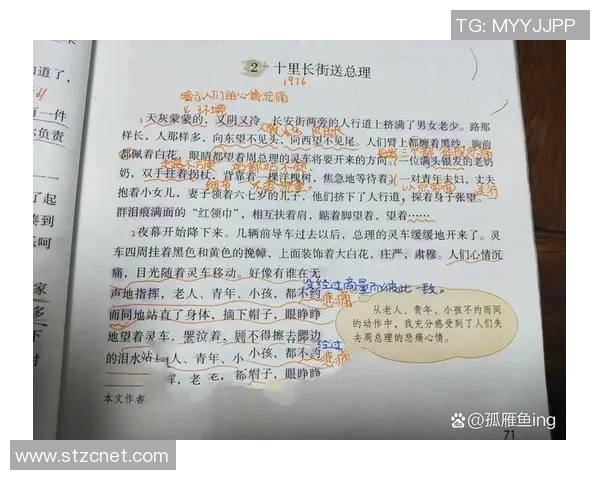 TG: MYYJJPP
2 十里长街送总理
1976
暗示人们的心情沉痛
环境
1天灰蒙蒙的，又阴又冷。长安街两旁的人行道上挤满了男女老少。路那
样长，人那样多，向东望不见头，向西望不见尾。人们臂上都缠着黑纱，胸前
都佩着白花，眼睛都望着周总理的灵车将要开来的方向。一位满头银发的老奶
奶，双手拄着拐杖，背靠着一棵洋槐树，焦急地等待着。一对青年夫妇，丈夫
抱着小女儿，妻子领着六七岁的儿子，他们挤下了人行道，探着身子张望。
群泪痕满面的“红领巾”，相互扶着肩，踮着脚望着，望着……
2夜幕开始降下来。几辆前导车过去以后，总理的灵车缓缓地开来了。灵
车四周挂着黑色和黄色的挽幛，上面装饰着大白花，庄严，肃穆。人们心情沉
痛，目光随着灵车移动。好像有谁在无
没经过商量而彼此一致。
声地指挥，老人、青年、小孩，都不约
悲痛
而同地站直了身体，摘下帽子，眼睁睁
地望着灵车，哭泣着，顾不得擦去腮边
的泪水
人、青年、小孩，都不约
经过
悲痛
挥，老
帽子，眼睁睁
从老人、青年、小孩不约而同
的动作中，我充分感受到了人们失
去周总理的悲痛心情。
本文作者
道了，
有一件
负责
起
凑到
呋呵
家
多
下
71
百家号/孤雁鱼ing
www.stzcnet.com